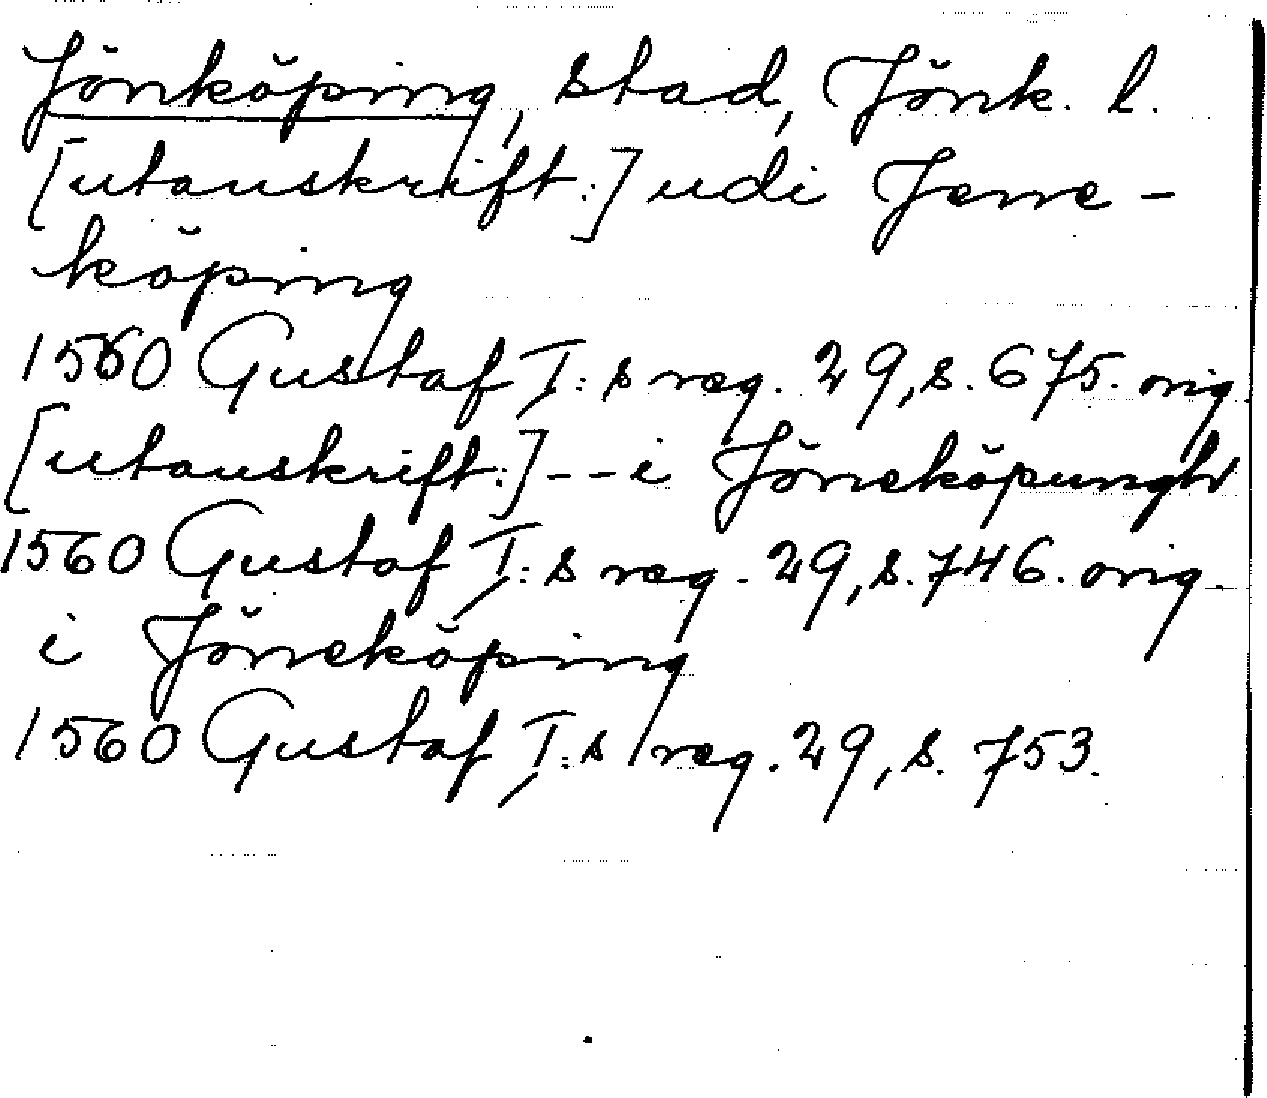 Jönköping, stad, Jönk. l.
[utanskrift:] udi Jenne-
köping
1560 Gustaf I:s reg. 29, s. 675. orig
[utanskrift:] -- i Jöneköpungh
1560 Gustaf I:s reg. 29, s. 746. orig.
i Jöneköping
1560 Gustaf I:s reg. 29, s. 753.